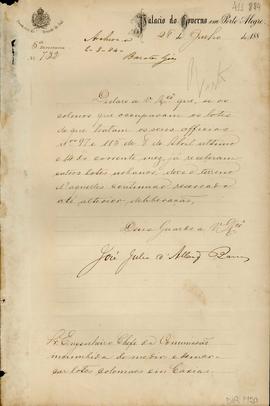 411 884
Palacio do Governo em Porto Alegre,
28 de Junho de 188
5ª
Nº 722
Archive-se
Barata Góes
Declaro a Vª Sª que, se os
colonos que occupavam os lotes
de que tratam os seus officios
nºs 97 e 113 de 8 de Abril ultimo
e 14 do corrente mez, já receberam
outros lotes urbanos, deve o terreno
d'aquelles continuar reservado
até ulterior deliberação.
Deus Guarde a Vª Sª
José Julio d'Albuqº Barros
Sr Engenheiro Chefe da Commissão
incumbida de medir e demar-
car lotes coloniaes em Caxias.